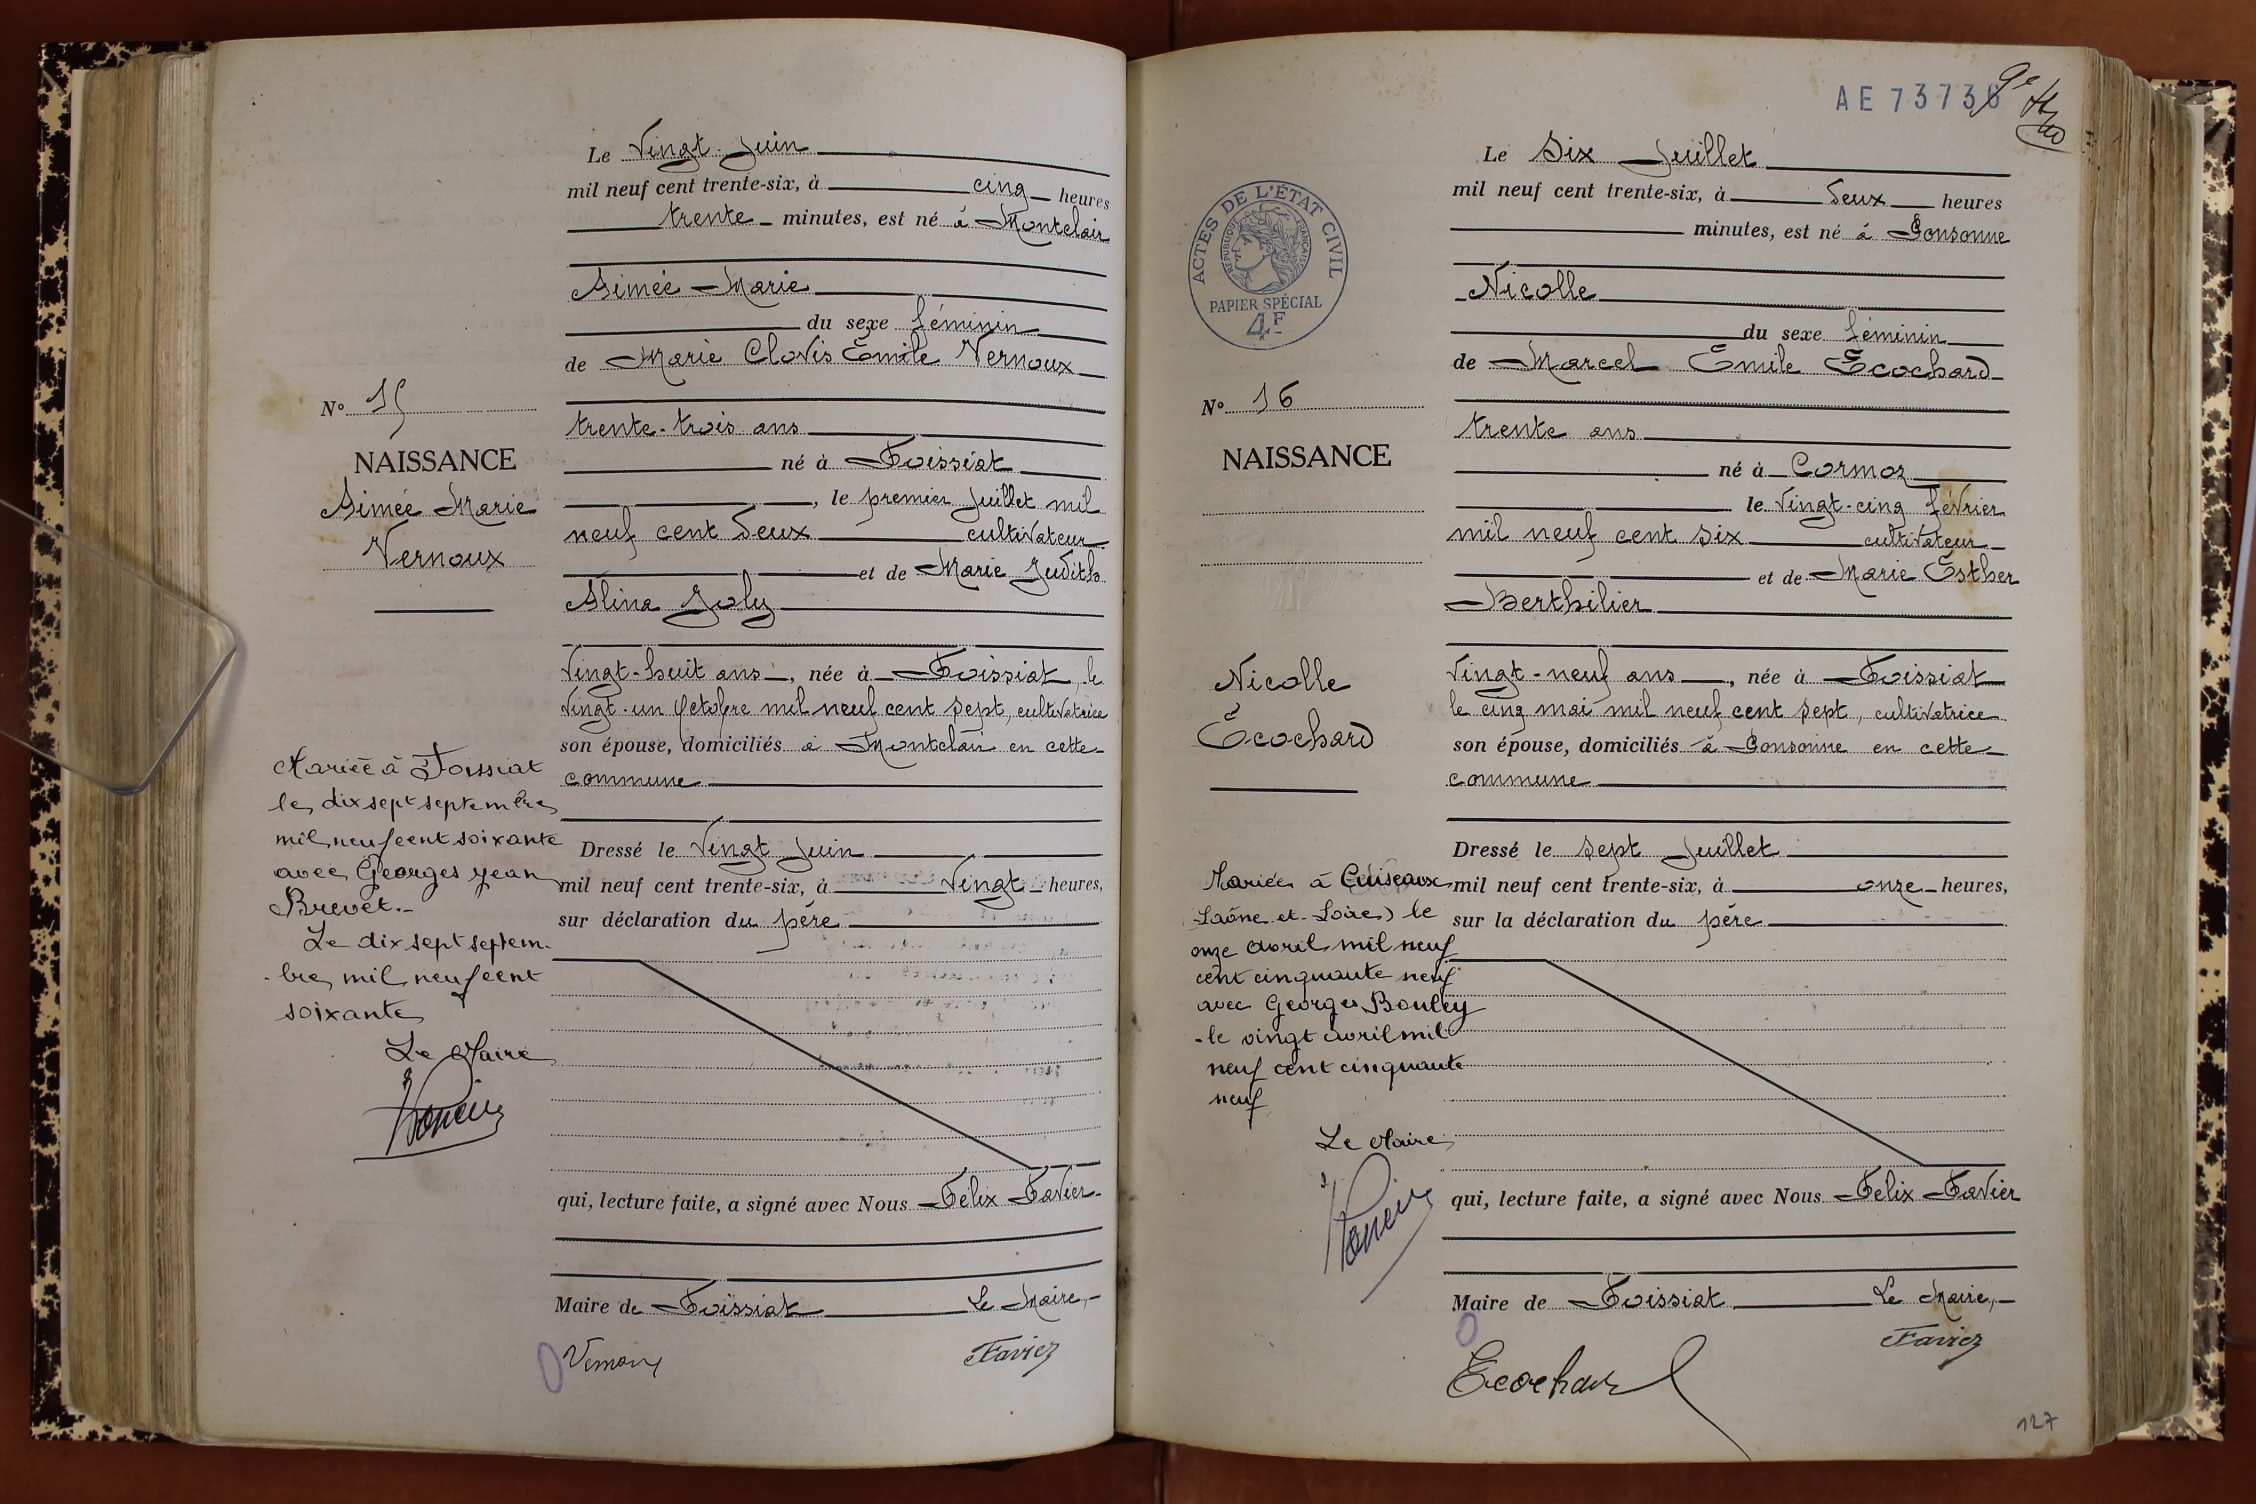 Le Vingt Juin
mil neuf cent trente-six, à cinq heures
trente minutes, est né à Montclair
Aimée Marie
du sexe féminin
de Marie Clovis Émile Vernoux
trente-trois ans
né à Foissiat
, le premier Juillet mil
neuf cent deux cultivateur
et de Marie Judith
Alina Joly
Vingt-huit ans, née à Foissiat, le
Vingt-un Octobre mil neuf cent sept, cultivatrice
son épouse, domiciliés à Montclair en cette
commune
Dressé le Vingt Juin
mil neuf cent trente-six, à Vingt heures,
sur déclaration du père
qui, lecture faite, a signé avec Nous Félix Favier
Maire de Foissiat Le Maire,
Vernoux Favier
N° 15
NAISSANCE
Aimée Marie
Vernoux
Mariée à Foissiat
le dix sept septembre
mil neuf cent soixante
avec Georges Jean
Brevet.-
Le dix sept septem-
-bre mil neuf cent
soixante
Le Maire
AE 73736
Le Six Juillet
mil neuf cent trente-six, à deux heures
minutes, est né à Gonsonne
Nicolle
du sexe féminin
de Marcel Émile Écochard
trente ans
né à Cormoz
le Vingt-cinq février
mil neuf cent six cultivateur
et de Marie Esther
Berthilier
Vingt-neuf ans, née à Foissiat
le cinq mai mil neuf cent sept, cultivatrice
son épouse, domiciliés à Gonsonne en cette
commune
Dressé le sept Juillet
mil neuf cent trente-six, à onze heures,
sur la déclaration du père
qui, lecture faite, a signé avec Nous Felix Favier
Maire de Foissiat Le Maire,
Favier
Ecochard
ACTES DE L'ÉTAT CIVIL
RÉPUBLIQUE FRANÇAISE
PAPIER SPÉCIAL
4F
N° 16
NAISSANCE
Nicolle
Écochard
Mariée à Cuiseaux
Saône-et-Loire) le
onze avril mil neuf
cent cinquante neuf
avec Georges Bouley
-le vingt avril mil
neuf cent cinquante
neuf
Le Maire
127